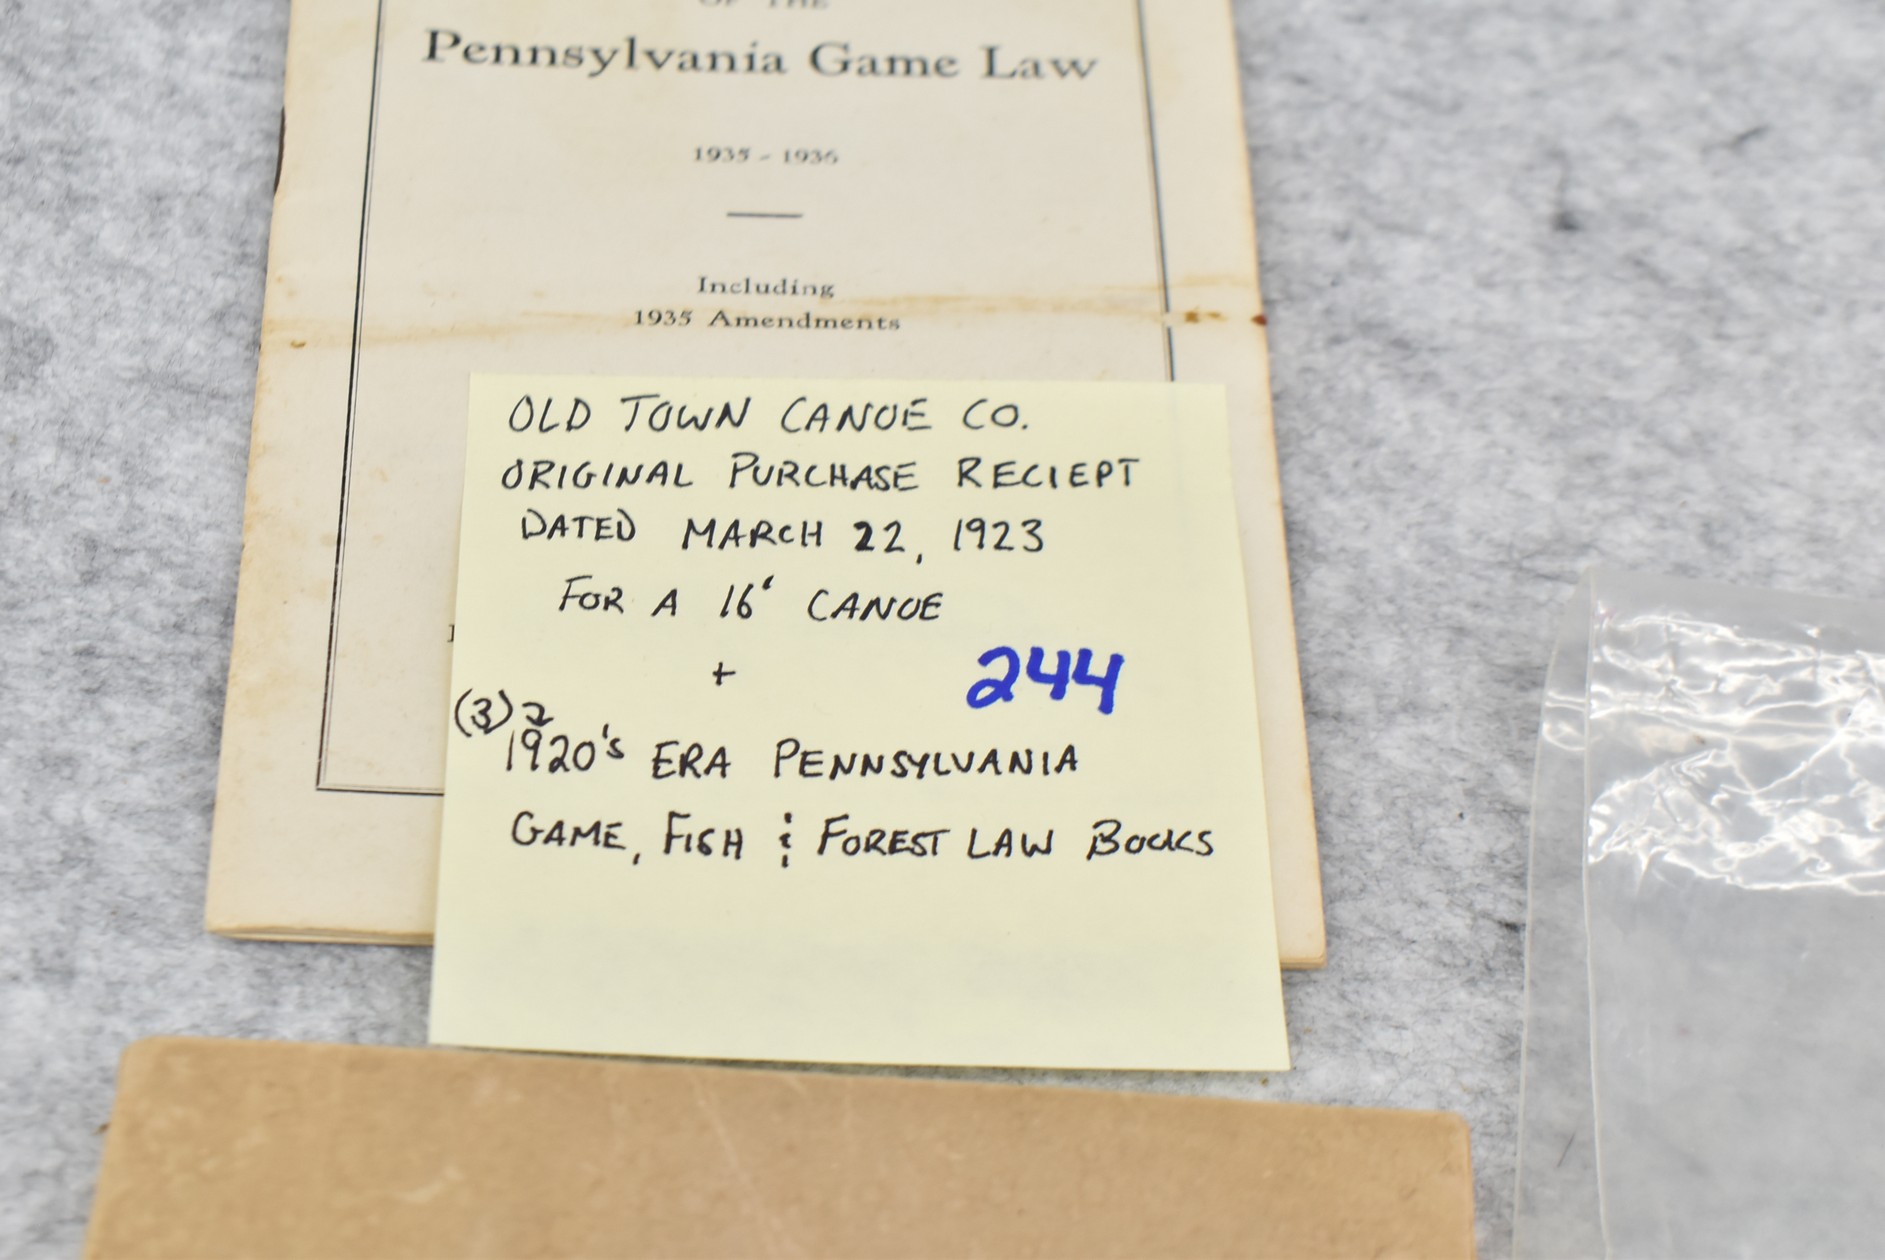 OF THE
Pennsylvania Game Law
1935 - 1936
Including
1935 Amendments
OLD TOWN CANOE CO.
ORIGINAL PURCHASE RECIEPT
DATED MARCH 22, 1923
FOR A 16' CANOE
+
244
(3) 2
1920's ERA PENNSYLVANIA
GAME, FISH & FOREST LAW BOOKS